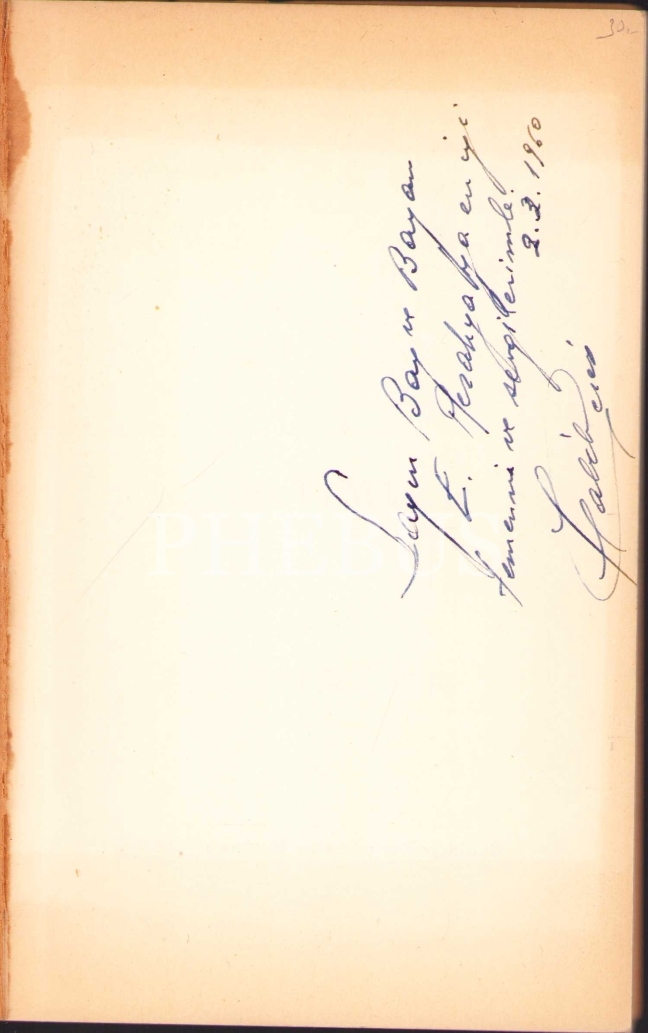 Sayın Bay ve Bayan
E. Perahya'ya en iyi
temenni ve sevgilerimle.
2.2.1960
30.-
PHEBUS